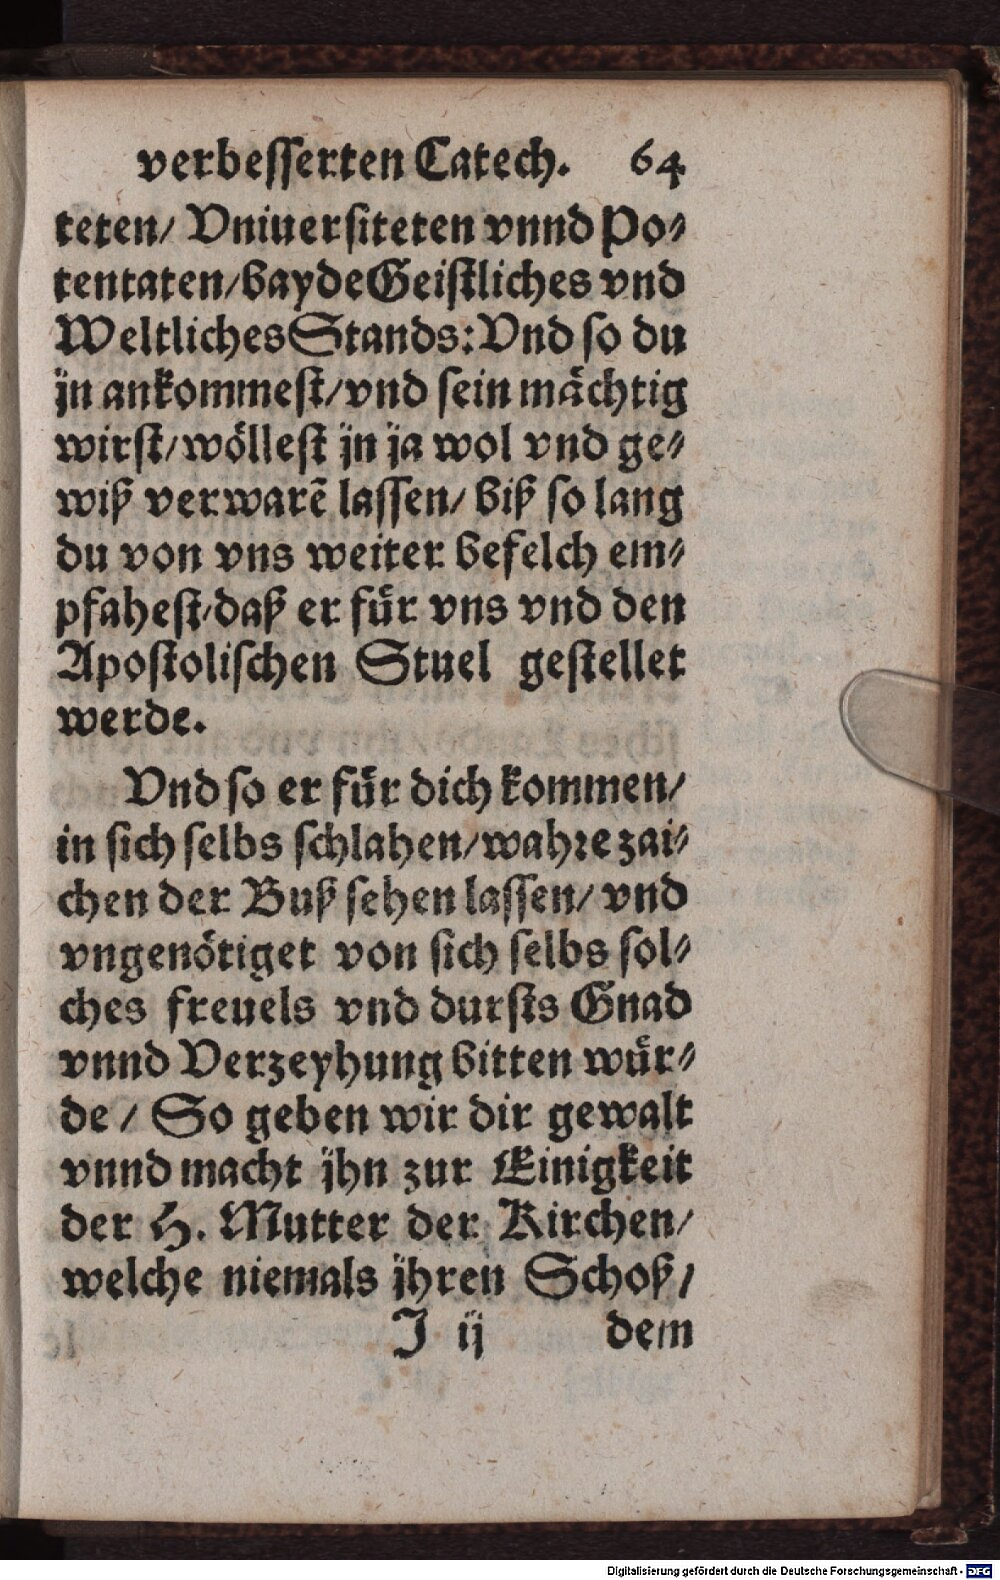 verbesserten Catech. 64
teten/ Vniuersiteten vnnd Po-
tentaten/bayde Geistliches vnd
Weltliches Stands: Vnd so du
jn ankommest/vnd sein mächtig
wirst/wöllest jn ja wol vnd ge-
wiß verwarẽ lassen/ biß so lang
du von vns weiter befelch em-
pfahest/daß er für vns vnd den
Apostolischen Stuel gestellet
werde.
Vnd so er für dich kommen/
in sich selbs schlahen/wahre zai-
chen der Buß sehen lassen/ vnd
vngenötiget von sich selbs sol-
ches freuels vnd dursts Gnad
vnnd Verzeyhung bitten wür-
de/ So geben wir dir gewalt
vnnd macht jhn zur Einigkeit
der H. Mutter der Kirchen/
welche niemals jhren Schoß/
J ij dem
Digitalisierung gefördert durch die Deutsche Forschungsgemeinschaft - DFG